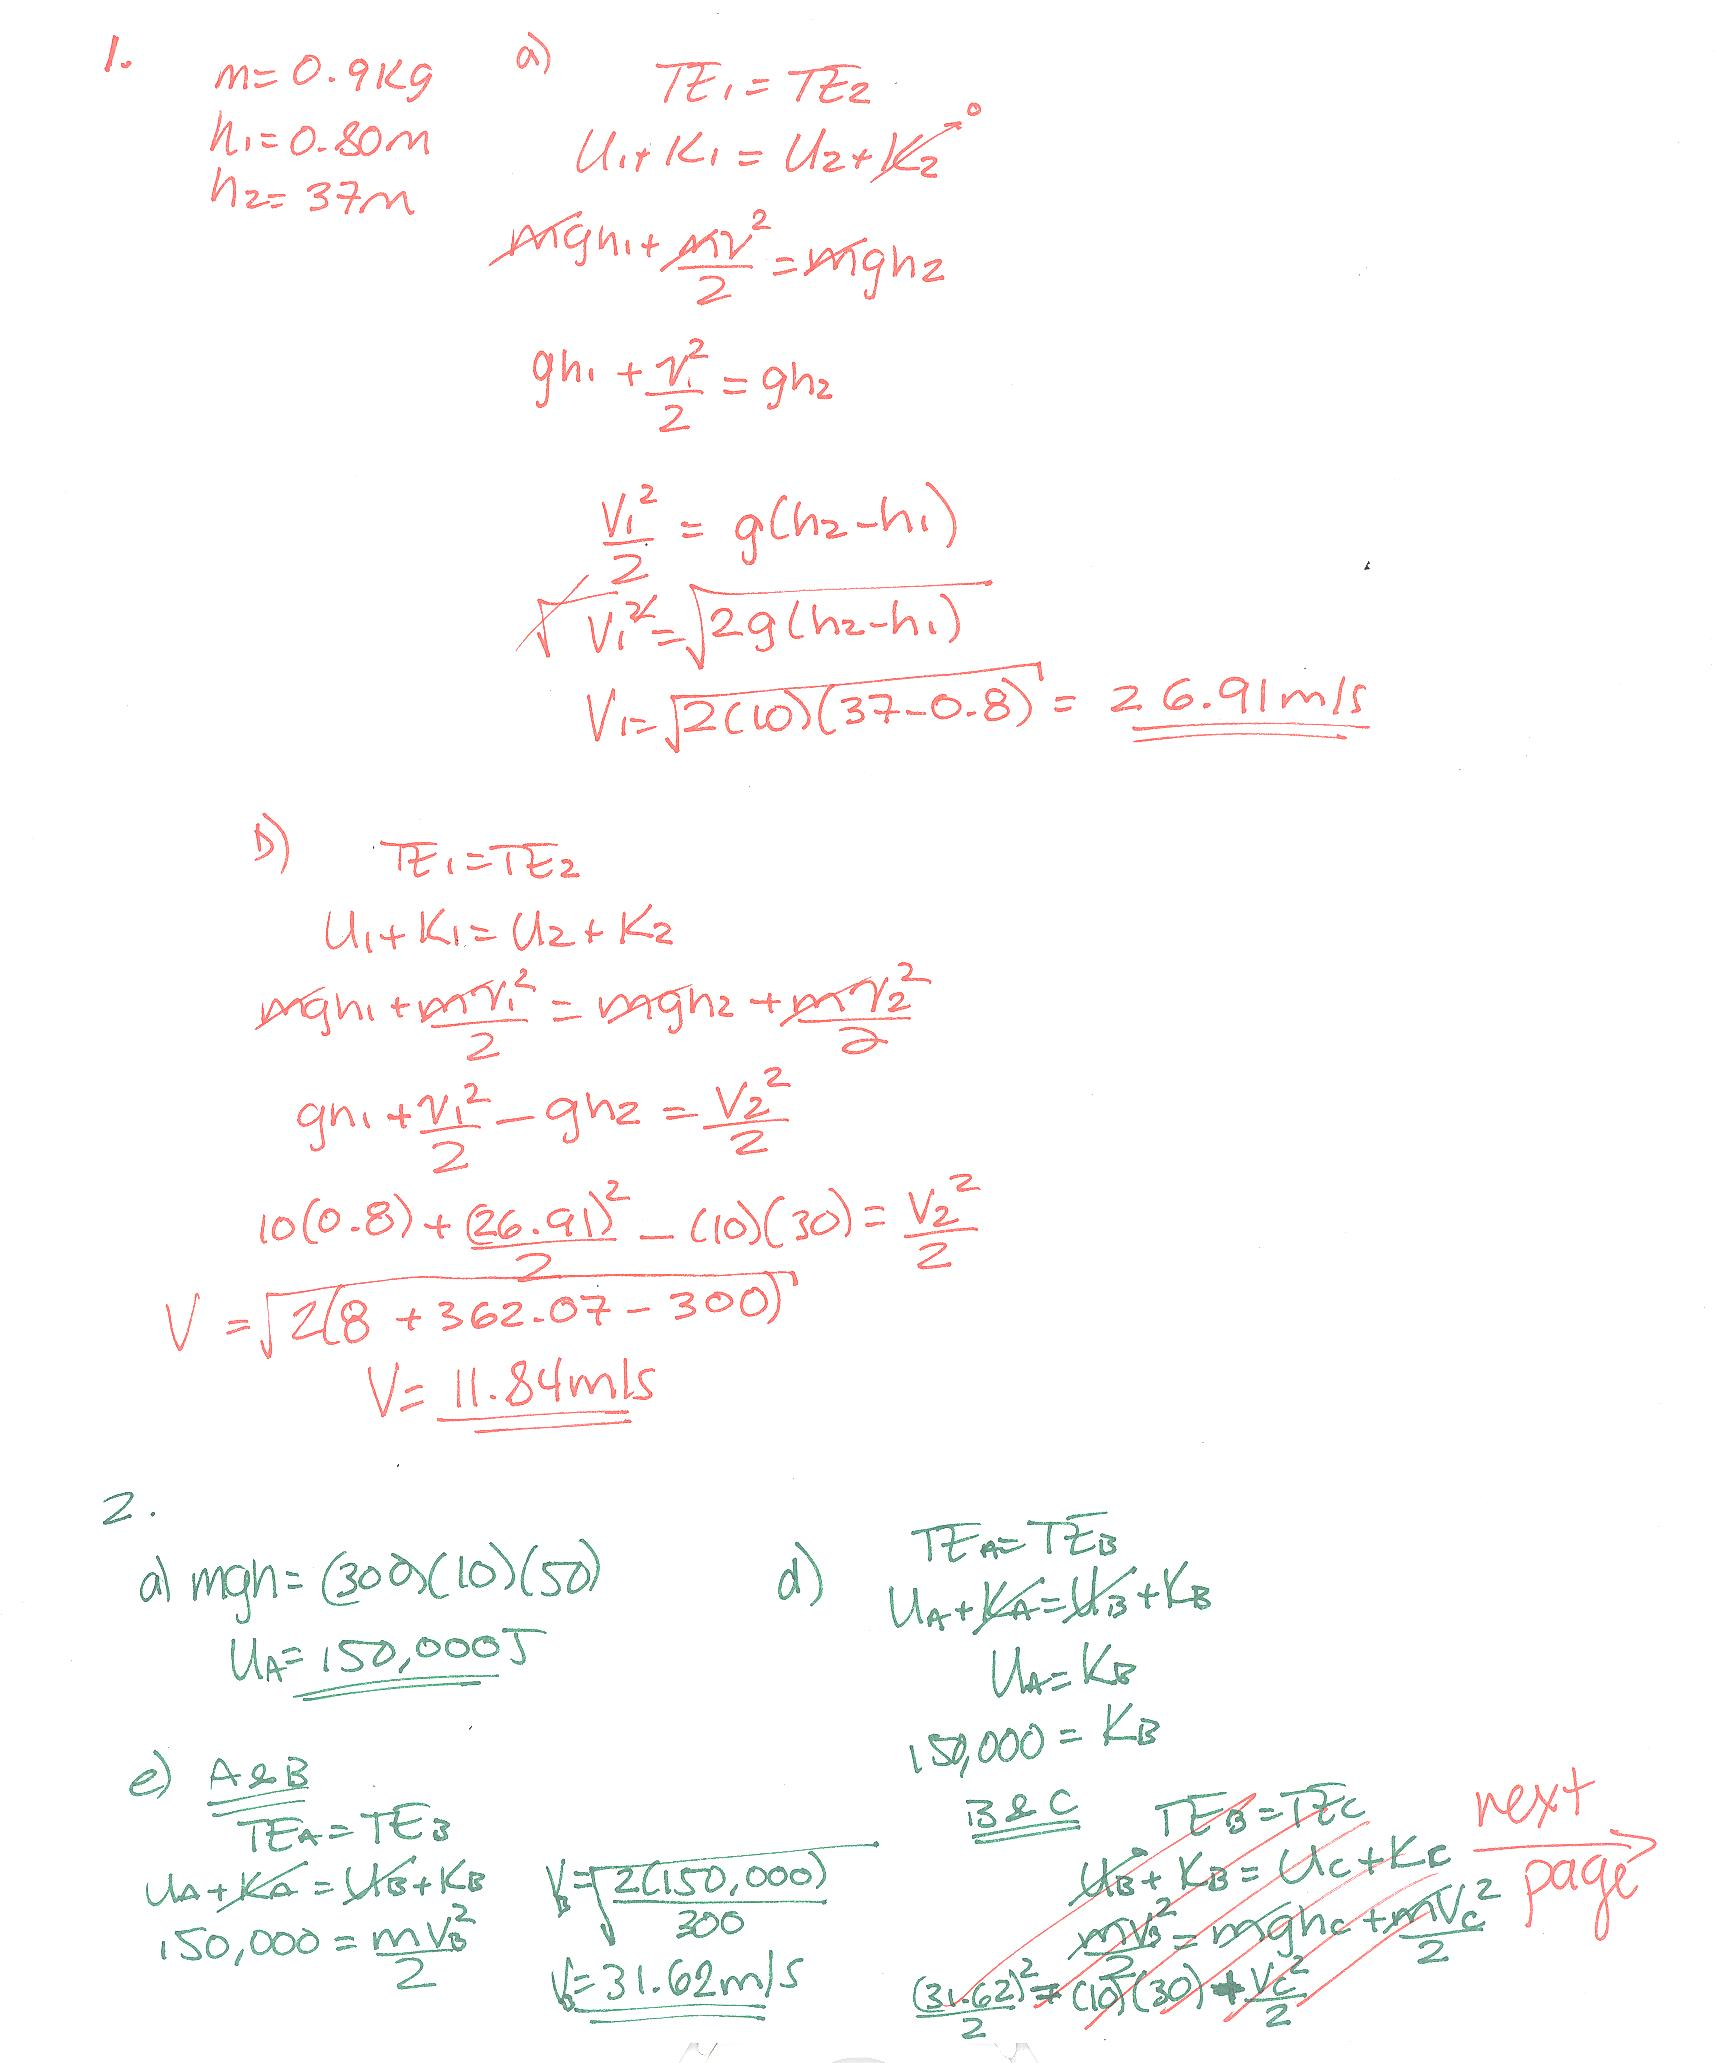 1.
m= 0.9Kg
h₁=0.80m
h₂= 37m
a)
TE₁ = TE₂
U₁+ K₁ = U₂+ K₂ → 0
mgh₁ + mv²/2 = mgh₂
gh₁ + v₁²/2 = gh₂
V₁²/2 = g(h₂-h₁)
√V₁² = √2g(h₂-h₁)
V₁= √2(10)(37-0.8) = 26.91m/s
b)
TE₁=TE₂
U₁+ K₁= U₂+ K₂
mgh₁ + mv₁²/2 = mgh₂ + mv₂²/2
gh₁ + v₁²/2 - gh₂ = V₂²/2
10(0.8) + (26.91)²/2 - (10)(30) = V₂²/2
V = √2(8 + 362.07 - 300)
V= 11.84m/s
2.
a) mgh= (300)(10)(50)
U_A= 150,000J
d)
TE_A= TE_B
U_A+ K_A= U_B+ K_B
U_A= K_B
150,000 = K_B
e) A & B
TE_A= TE_B
U_A+ K_A = U_B+ K_B
150,000 = mV_B²/2
V_B=√2(150,000)/300
V_B= 31.62m/s
B & C
TE_B=TE_C
U_B+ K_B= U_C+ K_C
mV_B²/2 = mgh_C + mV_C²/2
(31.62)²/2 = (10)(30) + V_C²/2
next
page